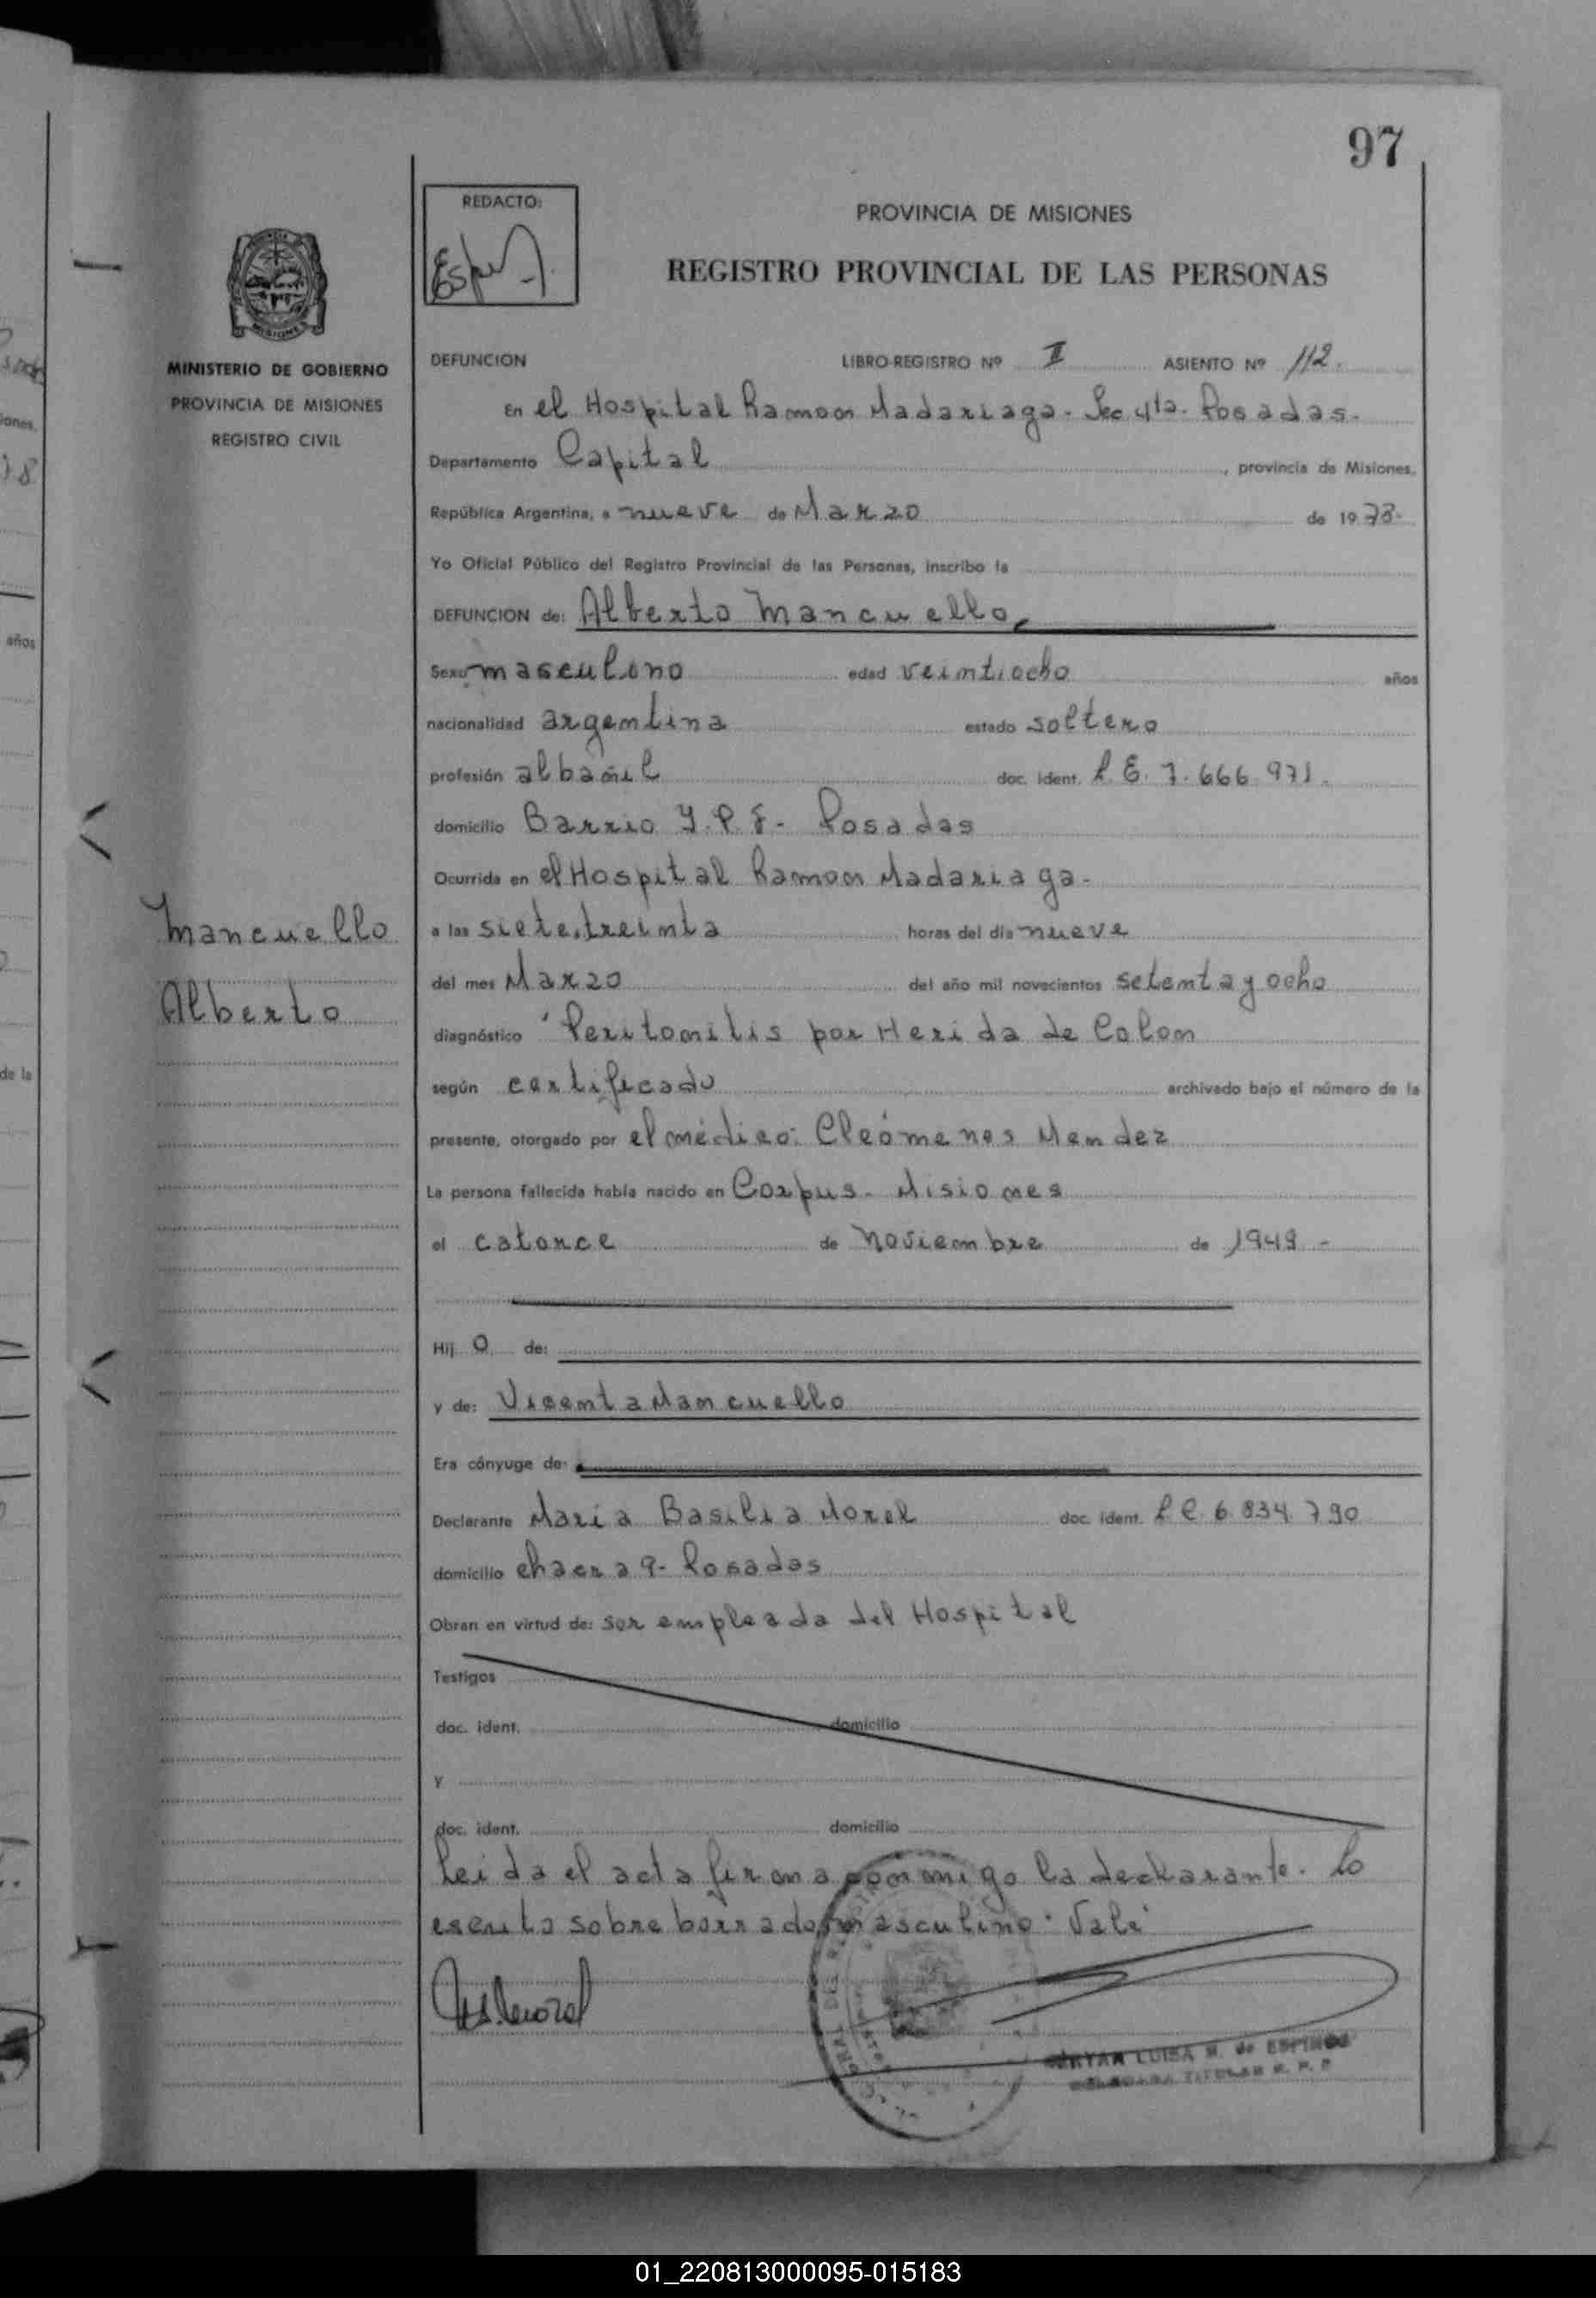 97
REDACTO:
PROVINCIA DE MISIONES
REGISTRO PROVINCIAL DE LAS PERSONAS
MINISTERIO DE GOBIERNO
PROVINCIA DE MISIONES
REGISTRO CIVIL
DEFUNCION LIBRO-REGISTRO Nº II ASIENTO Nº 112.
En el Hospital Ramon Madariaga - Sec 4ta. Posadas.
Departamento Capital, provincia de Misiones.
República Argentina, a nueve de Marzo de 1978.
Yo Oficial Público del Registro Provincial de las Personas, inscribo la
DEFUNCION de: Alberto Mancuello
Sexo masculino edad veintiocho años
nacionalidad argentina estado soltero
profesión albañil doc. ident. L E. 7.666.971.
domicilio Barrio Y.P.F - Posadas
Ocurrida en el Hospital Ramon Madariaga -
Mancuello
Alberto
a las siete, treinta horas del día nueve
del mes Marzo del año mil novecientos setenta y ocho
diagnóstico "Peritonitis por Herida de Colon
según certificado archivado bajo el número de la
presente, otorgado por el médico: Cleómenes Mendez
La persona fallecida había nacido en Corpus - Misiones
el catorce de Noviembre de 1949 -
Hij o de:
y de: Vicenta Mancuello
Era cónyuge de:
Declarante Maria Basilia Morel doc. ident. L C. 6.834.790
domicilio chacra 9 - Posadas
Obran en virtud de: ser empleada del Hospital
Testigos
doc. ident. domicilio
Y
doc. ident. domicilio
Leida el acta firma conmigo la declarante. Lo
escrito sobre borrado: masculino: Vale
LUISA M. de ESPINOSA
TITULAR R. P. P.
01_220813000095-015183